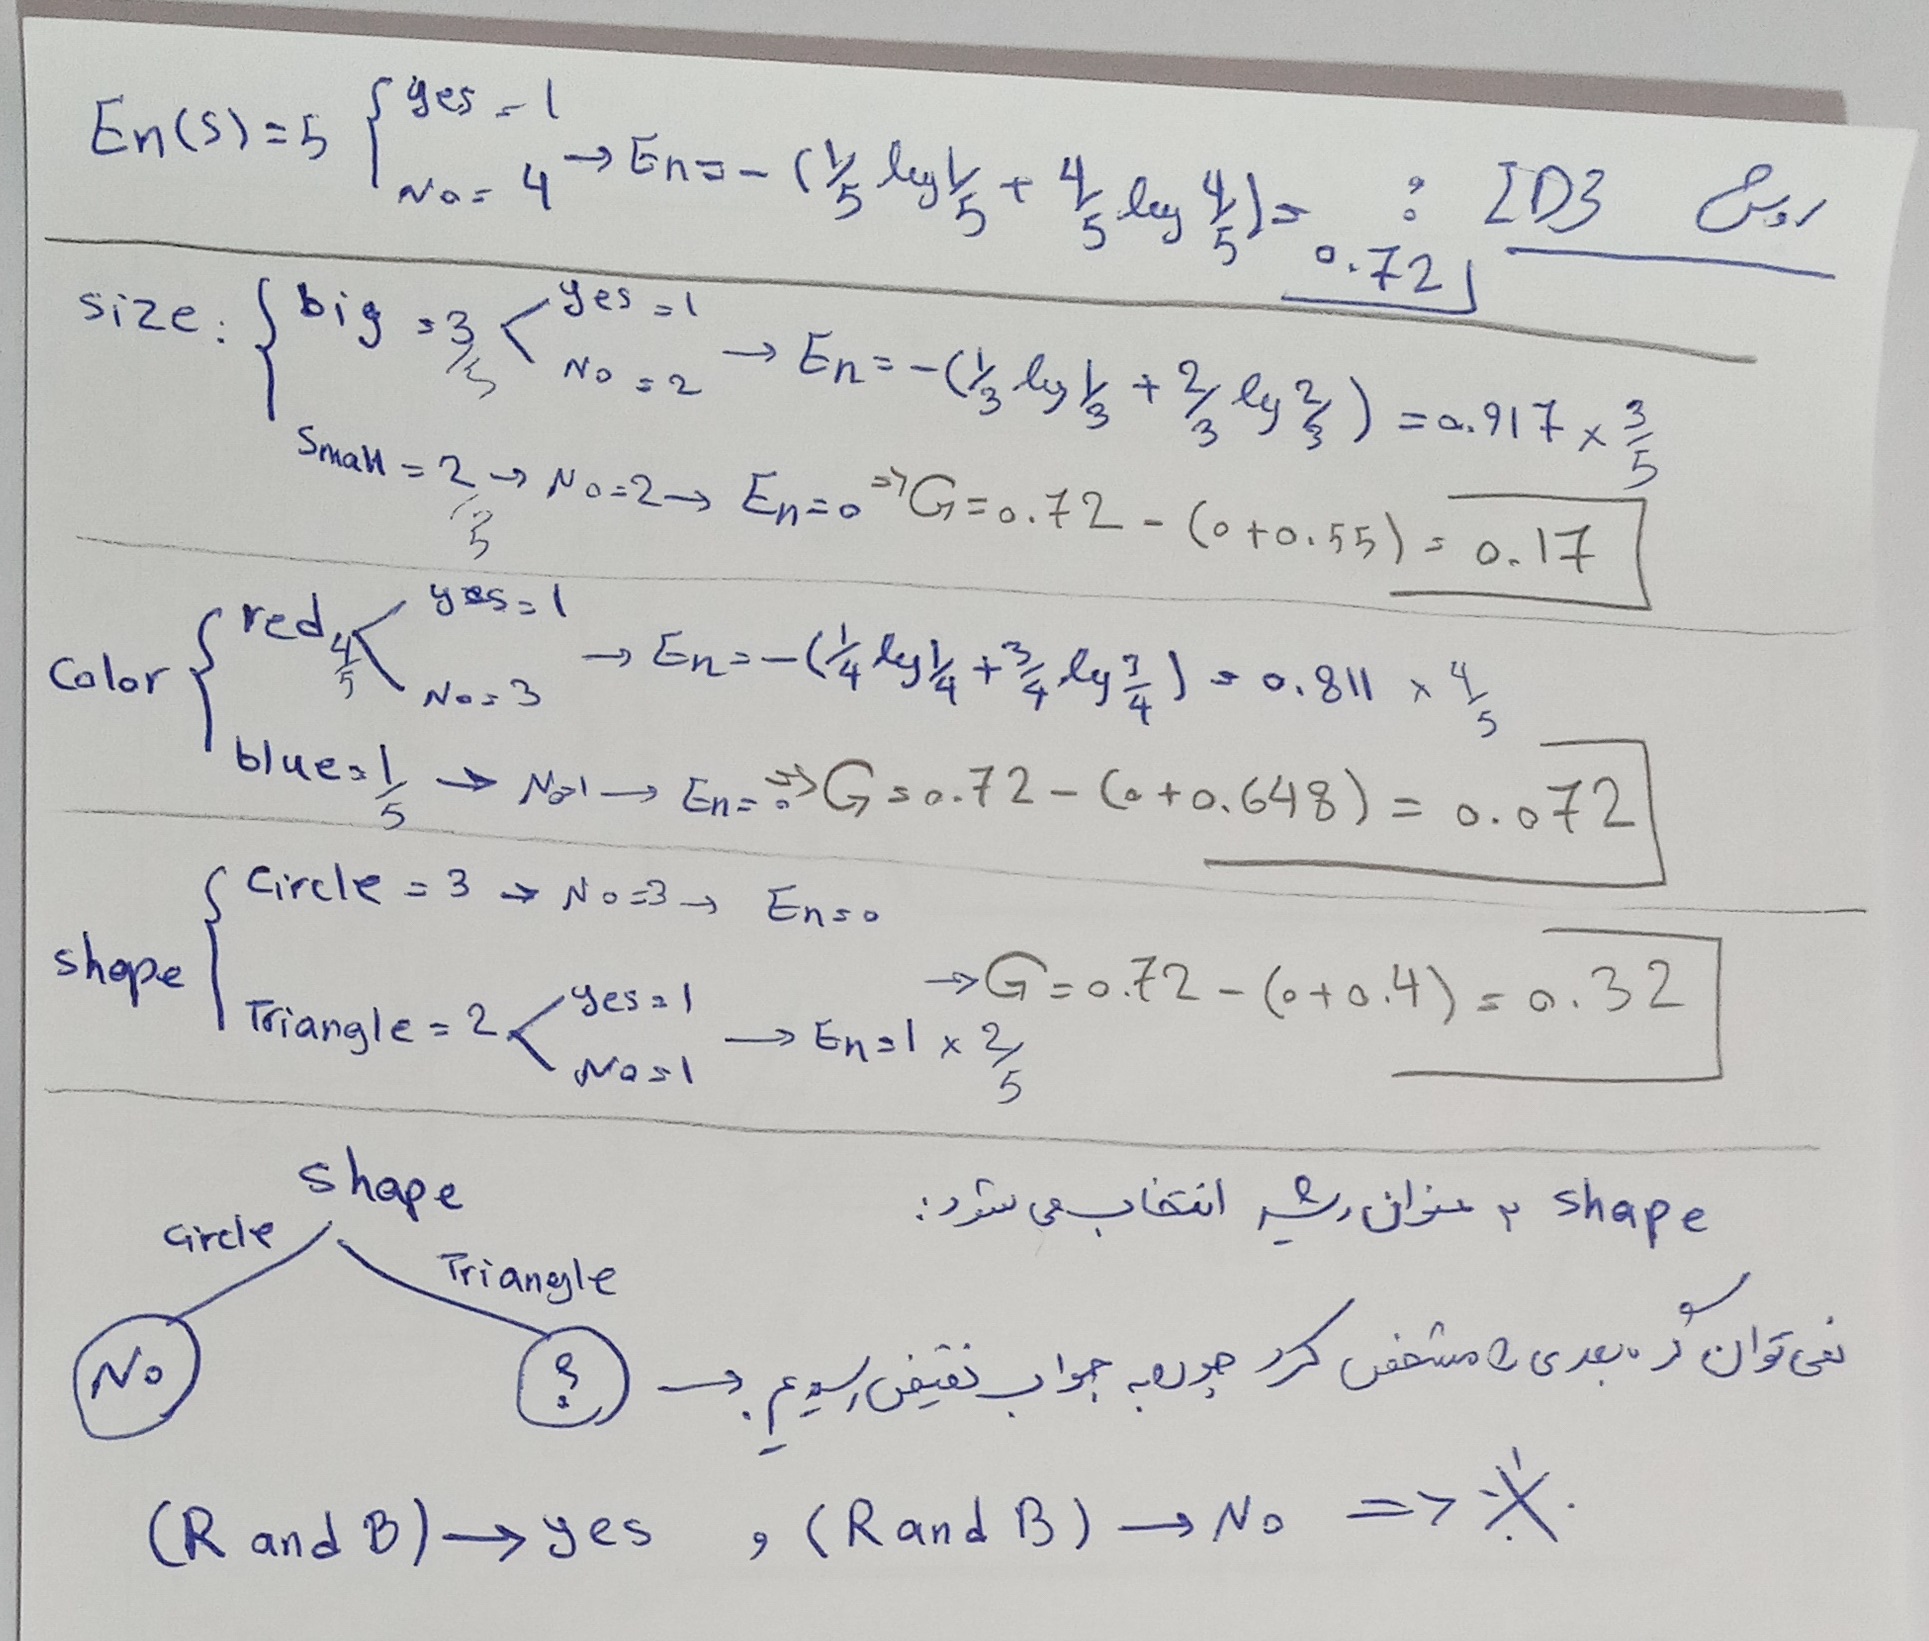 روش ID3 :
En(S) = 5 { yes = 1
No = 4 → En = - (1/5 log 1/5 + 4/5 log 4/5) = 0.72
size : { big = 3/5 < yes = 1
No = 2 → En = - (1/3 log 1/3 + 2/3 log 2/3) = 0.917 × 3/5
Small = 2/5 → No = 2 → En = 0 ⇒ G = 0.72 - (0 + 0.55) = 0.17
Color { red 4/5 < yes = 1
No = 3 → En = - (1/4 log 1/4 + 3/4 log 3/4) = 0.811 × 4/5
blue = 1/5 → No = 1 → En = 0 ⇒ G = 0.72 - (0 + 0.648) = 0.072
shape { Circle = 3 → No = 3 → En = 0
Triangle = 2 < yes = 1
No = 1 → En = 1 × 2/5
→ G = 0.72 - (0 + 0.4) = 0.32
shape به عنوان ریشه انتخاب می شود:
shape
Circle
Triangle
No
؟
→ نمی توان گره بعدی را مشخص کرد چون به جواب نقیض رسیدیم.
(R and B) → yes , (R and B) → No =>